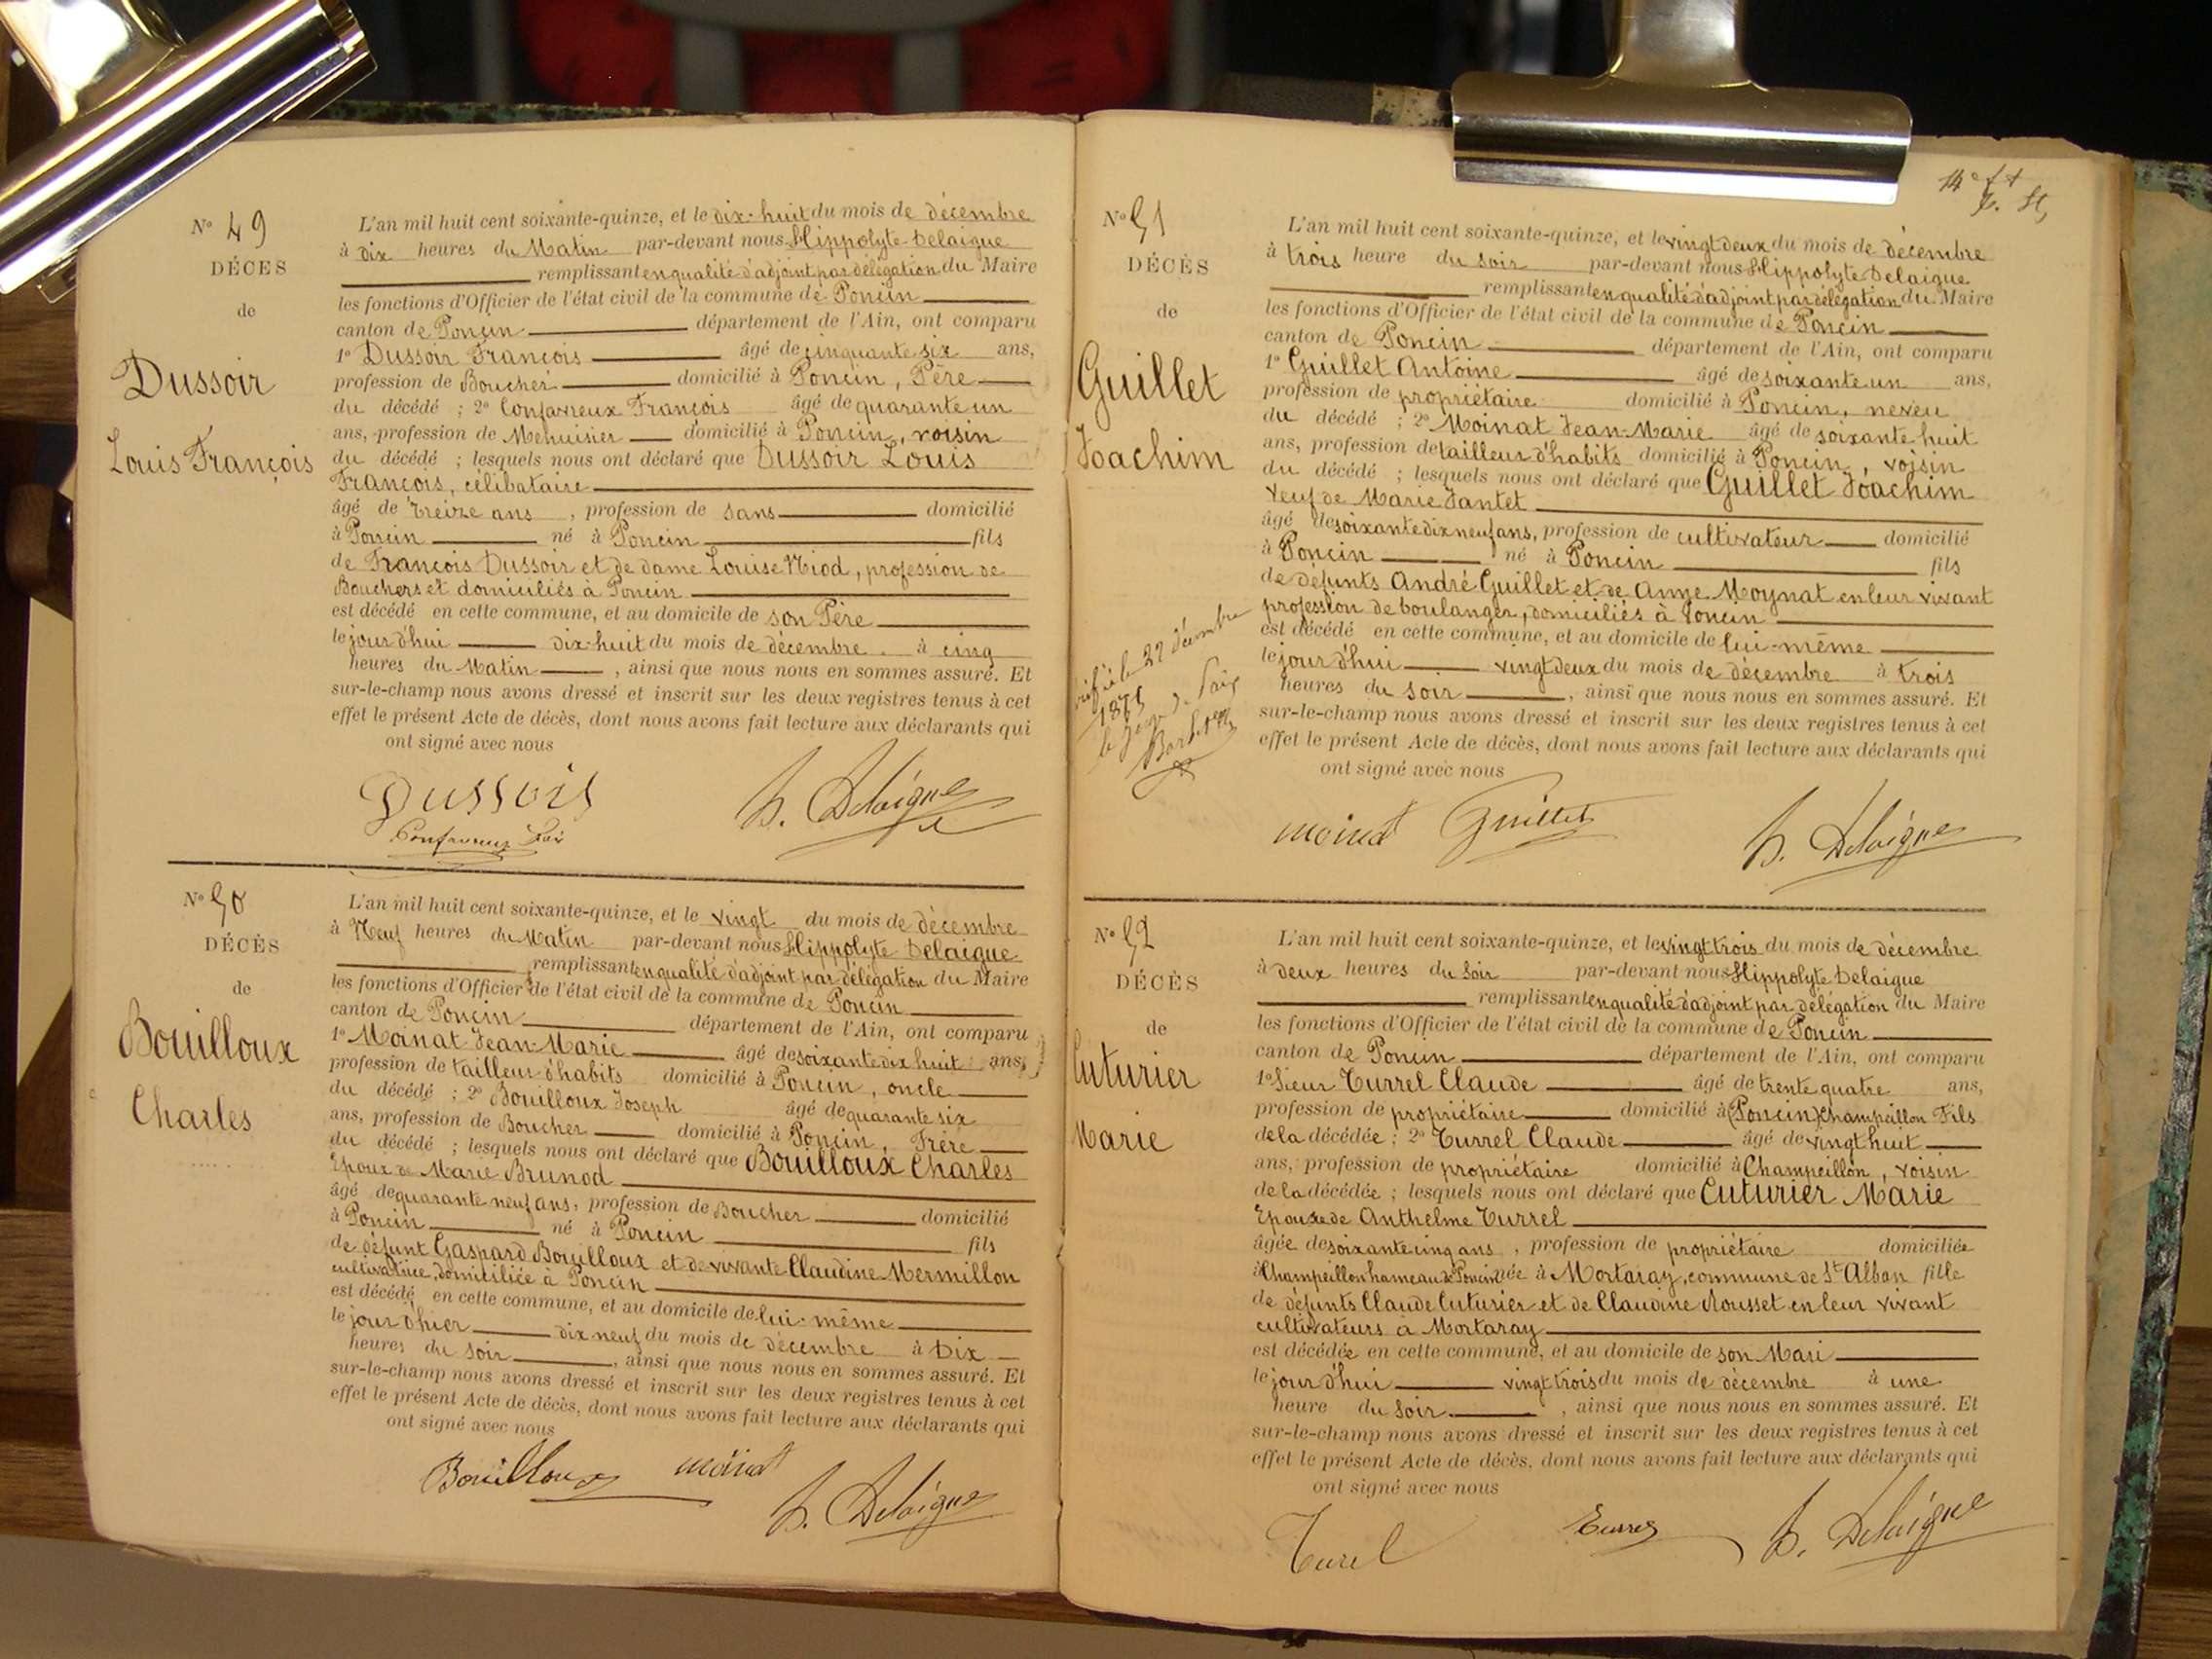 N° 49
DÉCES
de
Dussoir
Louis François
L'an mil huit cent soixante-quinze, et le dix-huit du mois de décembre
à dix heures du Matin par-devant nous Hippolyte Delaigue
remplissant en qualité d'adjoint par délégation du Maire
les fonctions d'Officier de l'état civil de la commune de Poncin
canton de Poncin département de l'Ain, ont comparu
1° Dussoir François âgé de cinquante six ans,
profession de Boucher domicilié à Poncin, Père
du décédé ; 2° Confavreux François âgé de quarante un
ans, profession de Menuisier domicilié à Poncin, voisin
du décédé ; lesquels nous ont déclaré que Dussoir Louis
François, célibataire
âgé de treize ans, profession de sans domicilié
à Poncin né à Poncin fils
de François Dussoir et de dame Louise Niod, profession de
Bouchers et domiciliés à Poncin
est décédé en cette commune, et au domicile de son Père
le jour d'hui dix-huit du mois de décembre à cinq
heures du Matin, ainsi que nous nous en sommes assuré. Et
sur-le-champ nous avons dressé et inscrit sur les deux registres tenus à cet
effet le présent Acte de décès, dont nous avons fait lecture aux déclarants qui
ont signé avec nous
Dussoir
Confavreux
H. Delaigue
N° 50
DÉCÈS
de
Bouilloux
Charles
L'an mil huit cent soixante-quinze, et le vingt du mois de décembre
à Neuf heures du Matin par-devant nous Hippolyte Delaigue
remplissant en qualité d'adjoint par délégation du Maire
les fonctions d'Officier de l'état civil de la commune de Poncin
canton de Poncin département de l'Ain, ont comparu
1° Moinat Jean-Marie âgé de soixante dix huit ans,
profession de tailleur d'habits domicilié à Poncin, oncle
du décédé ; 2° Bouilloux Joseph âgé de quarante six
ans, profession de Boucher domicilié à Poncin, Frère
du décédé ; lesquels nous ont déclaré que Bouilloux Charles
Epoux de Marie Brunod
âgé de quarante neuf ans, profession de Boucher domicilié
à Poncin né à Poncin fils
de défunt Gaspard Bouilloux et de vivante Claudine Mermillon
cultivatrice, domiciliée à Poncin
est décédé en cette commune, et au domicile de lui-même
le jour d'hier dix neuf du mois de décembre à Dix
heures du soir, ainsi que nous nous en sommes assuré. Et
sur-le-champ nous avons dressé et inscrit sur les deux registres tenus à cet
effet le présent Acte de décès, dont nous avons fait lecture aux déclarants qui
ont signé avec nous
Bouilloux moinat
H. Delaigue
N° 51
DÉCÈS
de
Guillet
Joachim
L'an mil huit cent soixante-quinze, et le vingt deux du mois de décembre
à trois heure du soir par-devant nous Hippolyte Delaigue
remplissant en qualité d'adjoint par délégation du Maire
les fonctions d'Officier de l'état civil de la commune de Poncin
canton de Poncin département de l'Ain, ont comparu
1° Guillet Antoine âgé de soixante un ans,
profession de propriétaire domicilié à Poncin, neveu
du décédé ; 2° Moinat Jean-Marie âgé de soixante huit
ans, profession de tailleur d'habits domicilié à Poncin, voisin
du décédé ; lesquels nous ont déclaré que Guillet Joachim
Veuf de Marie Jantet
âgé de soixante dix neuf ans, profession de cultivateur domicilié
à Poncin né à Poncin fils
de défunts André Guillet et de Anne Moynat en leur vivant
profession de boulanger, domiciliés à Poncin
est décédé en cette commune, et au domicile de lui-même
le jour d'hui vingt deux du mois de décembre à trois
heures du soir, ainsi que nous nous en sommes assuré. Et
sur-le-champ nous avons dressé et inscrit sur les deux registres tenus à cet
effet le présent Acte de décès, dont nous avons fait lecture aux déclarants qui
ont signé avec nous
le 27 décembre
1875
le Juge de Paix
moinat Guillet
H. Delaigue
N° 52
DÉCÈS
de
Cuturier
Marie
L'an mil huit cent soixante-quinze, et le vingt trois du mois de décembre
à deux heures du soir par-devant nous Hippolyte Delaigue
remplissant en qualité d'adjoint par délégation du Maire
les fonctions d'Officier de l'état civil de la commune de Poncin
canton de Poncin département de l'Ain, ont comparu
1° Sieur Turrel Claude âgé de trente quatre ans,
profession de propriétaire domicilié à (Poncin) Champeillon Fils
de la décédée ; 2° Turrel Claude âgé de vingt huit
ans, profession de propriétaire domicilié à Champeillon, voisin
de la décédée ; lesquels nous ont déclaré que Cuturier Marie
Epouse de Anthelme Turrel
âgée de soixante cinq ans, profession de propriétaire domiciliée
à Champeillon hameau de Poncin née à Mortaray, commune de St Alban fille
de défunts Claude Cuturier et de Claudine Rousset en leur vivant
cultivateurs à Mortaray
est décédée en cette commune, et au domicile de son Mari
le jour d'hui vingt trois du mois de décembre à une
heure du soir, ainsi que nous nous en sommes assuré. Et
sur-le-champ nous avons dressé et inscrit sur les deux registres tenus à cet
effet le présent Acte de décès, dont nous avons fait lecture aux déclarants qui
ont signé avec nous
Turel Turrel H. Delaigue